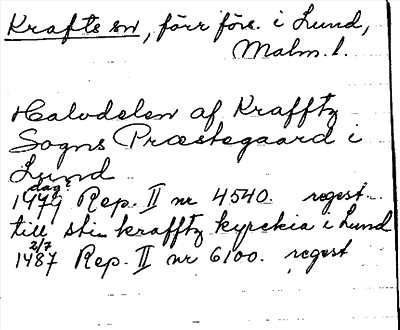 Krafts sn, förr förs. i Lund,
Malm. l.
Halvdelen af Krafftz
Sogns Præstegaard i
Lund
dag?
1479 Rep. II nr 4540. regest.
till sti krafftz kyrckia i Lund
2/7
1487 Rep. II nr 6100. regest